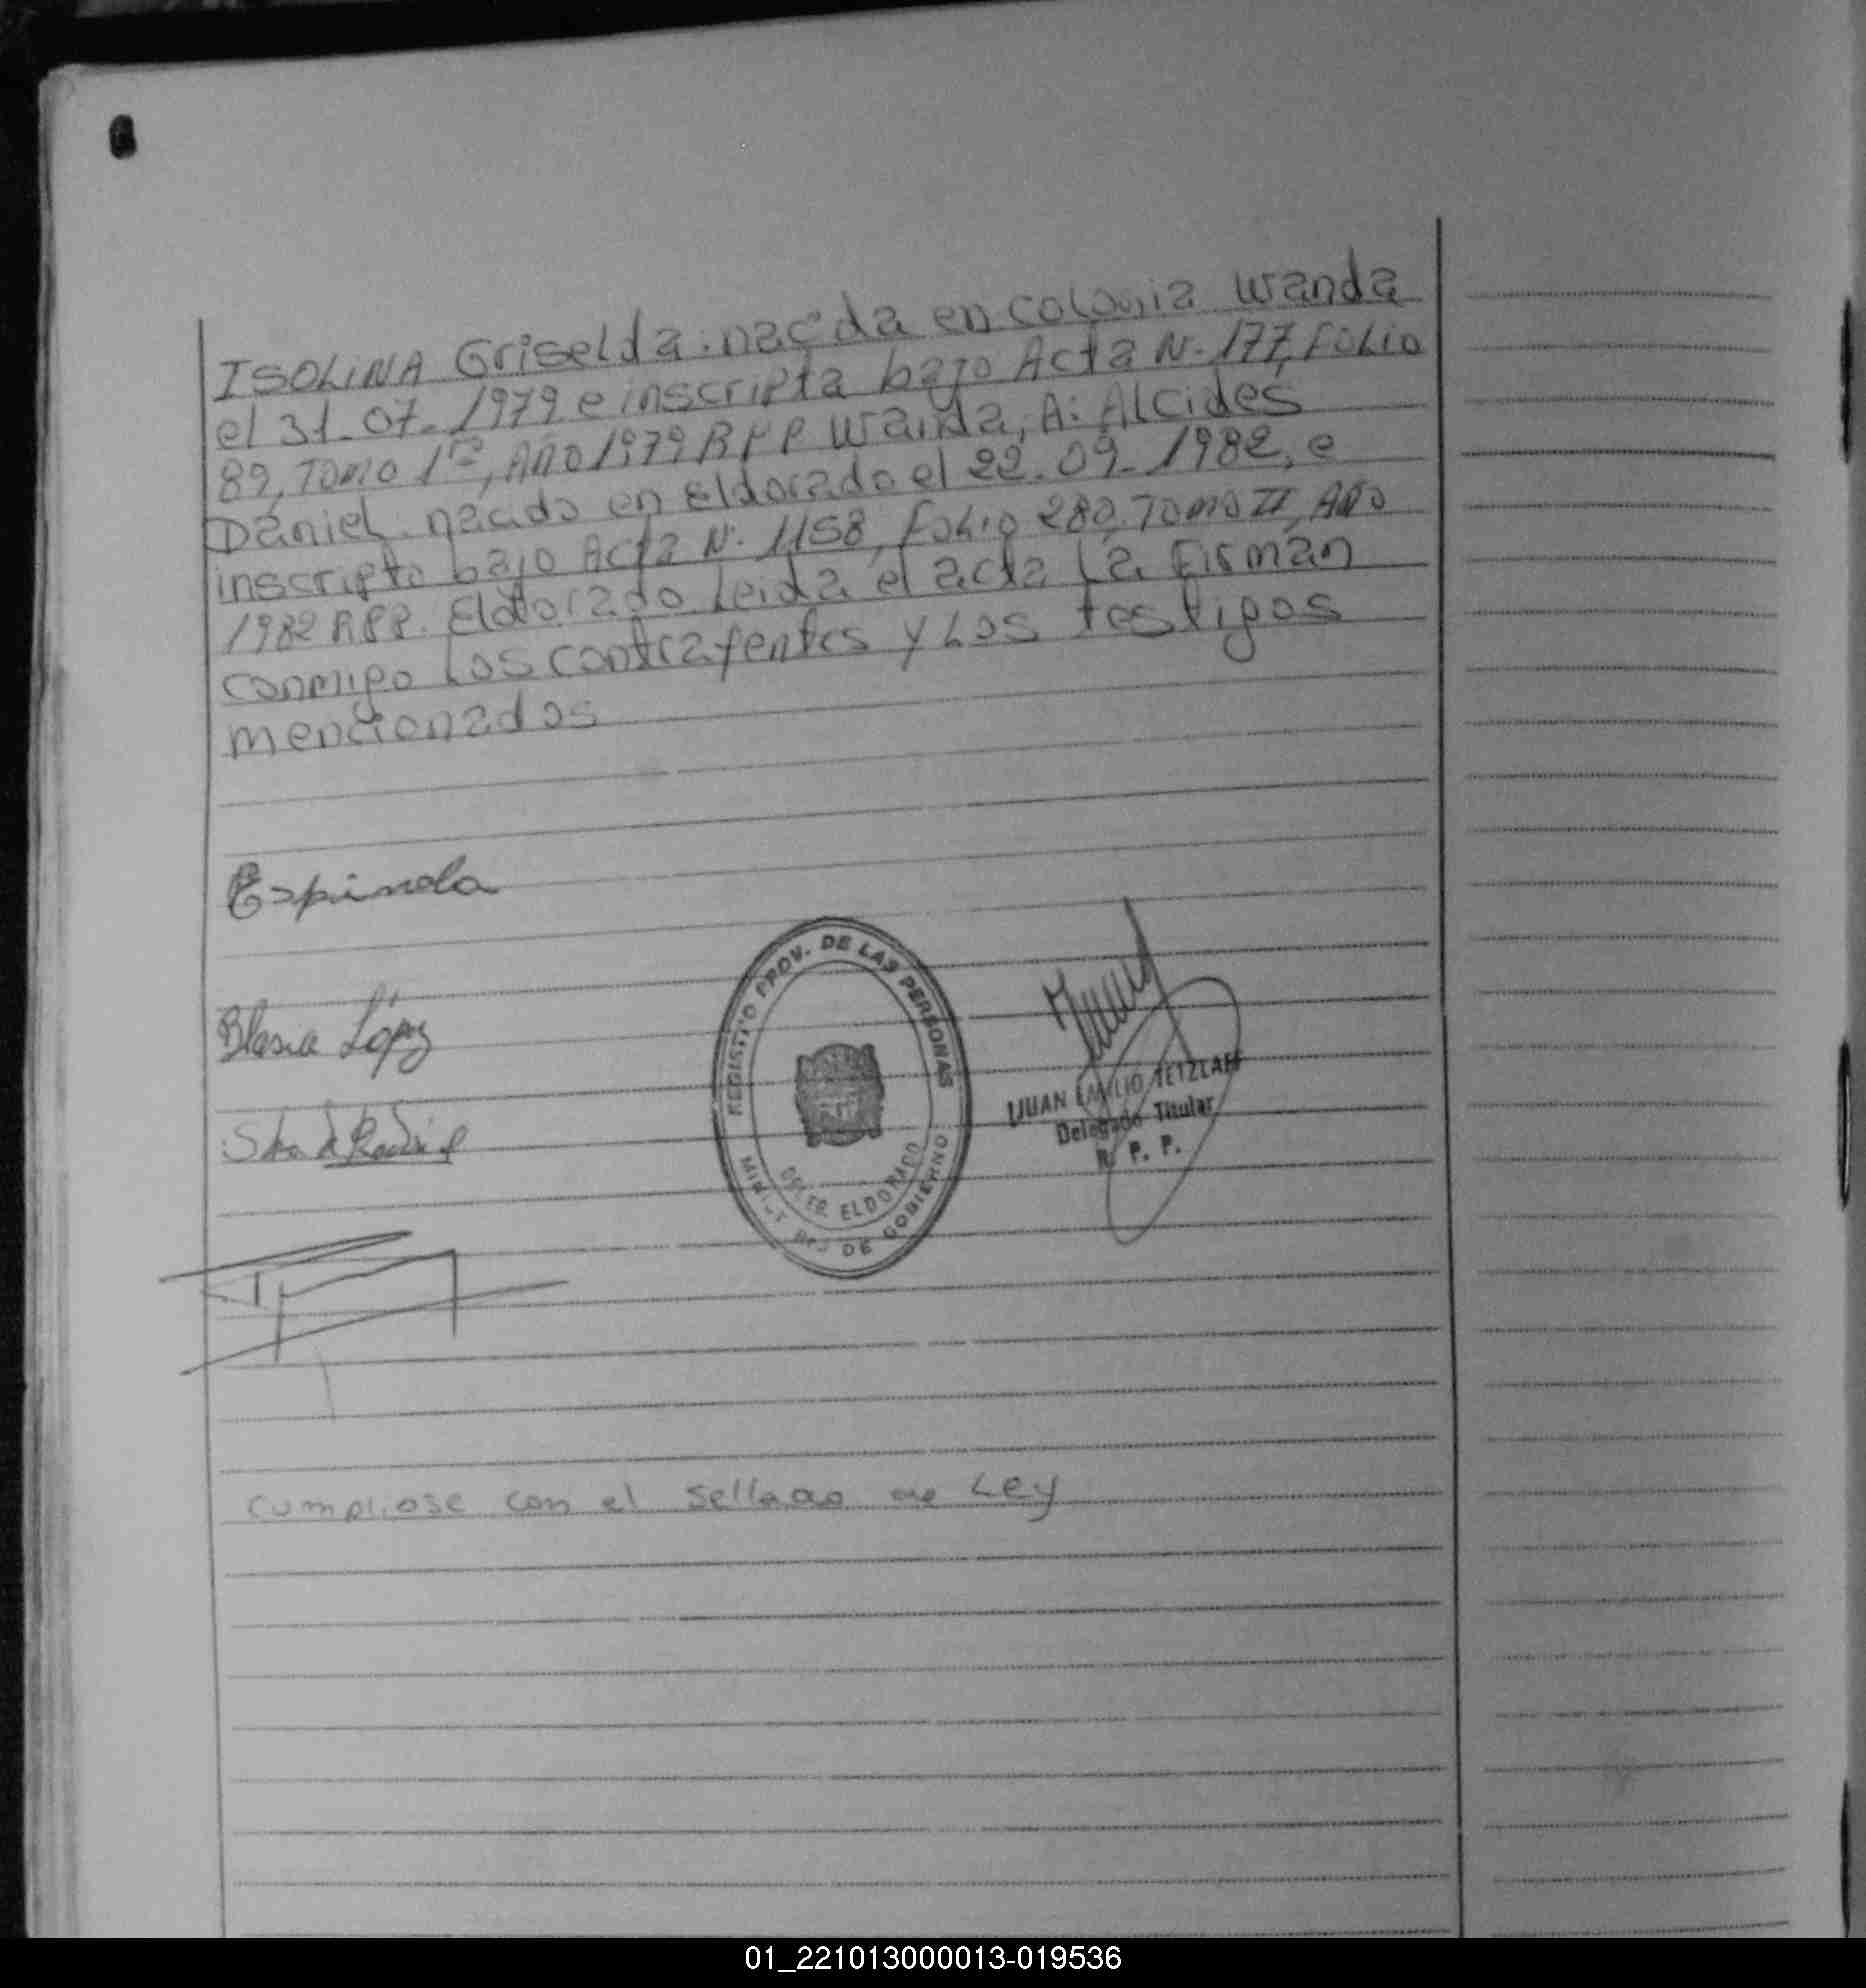 ISOLINA Griselda. nacida en colonia wanda
el 31-07-1979 e inscripta bajo Acta N. 177, Folio
89, Tomo 1, Año 1979 RPP Wanda, A: Alcides
Daniel. nacido en Eldorado el 22.09-1982, e
inscripto bajo Acta N. 1158, Folio 280, Tomo II, Año
1982 RPP. Eldorado Leida el acta La Firman
conmigo Los contrayentes y Los testigos
mencionados
Espinola
REGISTRO PROV. DE LAS PERSONAS
DELEG. ELDORADO
DE GOBIERNO
Blasia López
JUAN EMILIO TETZLAFF
Delegado Titular
R. P. P.
cumpliose con el sellado de Ley
01_221013000013-019536